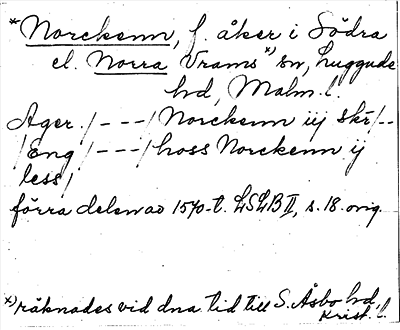 *Norckenn, f. åker i Södra
el. Norra Vrams*) sn, Luggude
hd, Malm. l.
Ager /---/ Norckenn iij skr/--
/Eng /---/ hoss Norckenn ij
less/
förra delen av 1570-t. LSLB II, s. 18. orig.
*) räknades vid dna tid till S. Åsbo hd,
Krist. l.